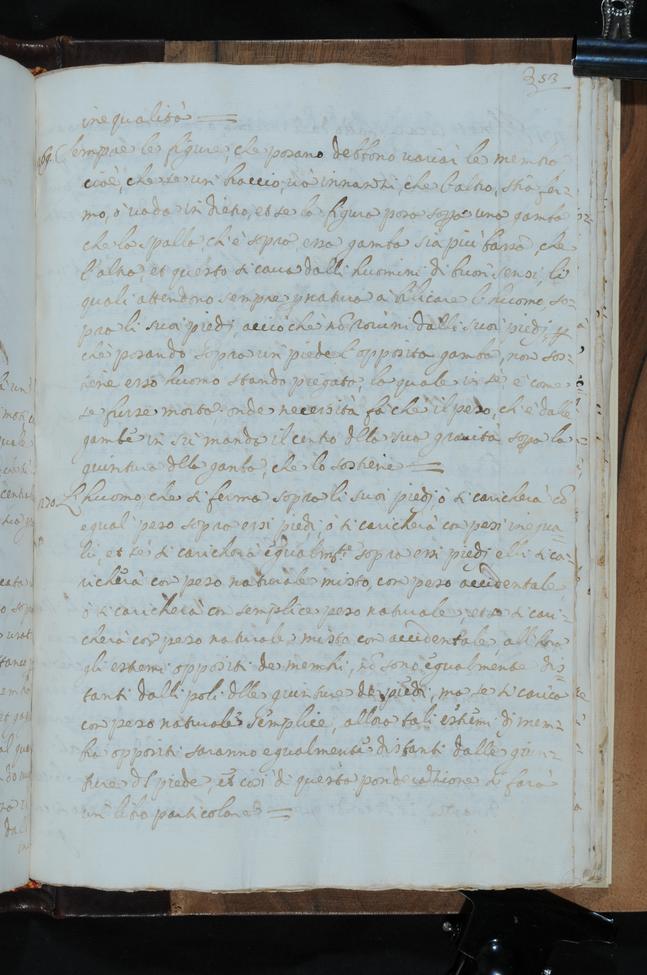 353
inequalità
169. Sempre le figure, che posano debbono uariar le membra
cioè, che se un braccio uà innanzi, che l'altro, stia fer-
mo, ò uada in dietro, et se la figura posa sopra una gamba
che la spalla, ch'è sopra essa gamba sia più bassa, che
l'altra, et questo si caua dalli huomini di buon sensi, li
quali attendono sempre p natura à bilicare l'huomo so-
pra li suoi piedi, acciò che nō rouini dalli suoi piedi, p
che posando sopra un piede l'opposita gamba, non sos-
tiene esso huomo stando piegata, la quale in sè è come
se fusse morta, onde necessità fa che il peso, ch'è dalle
gambe in sù mandi il centro della sua grauità sopra la
giuntura della gamba, che lo sostiene
170. L'huomo, che si ferma sopra li suoi piedi, ò si caricherà cō
equal peso sopra essi piedi, ò si caricherà con pesi inequa-
li, et se si caricherà equalmte sopra essi piedi elli si ca-
richerà con peso naturale misto, con peso accidentale,
ò si caricherà con semplice peso naturale, et se si cari-
cherà con peso naturale misto con accidentale, allhora
gli estremi oppositi de membri, nō sono egualmente dis-
tanti dalli poli delle giunture de piedi, ma se si carica
con peso naturale semplice, allora tali estremi di mem-
bra oppositi saranno egualmente distanti dalle giun-
ture del piede, et così di questa ponderazione si farà
un libro particolare